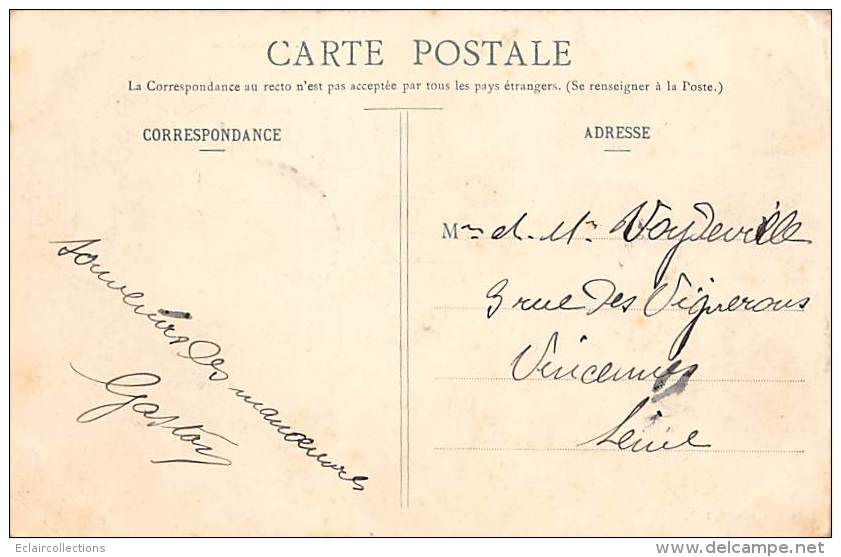 CARTE POSTALE
La Correspondance au recto n'est pas acceptée par tous les pays étrangers. (Se renseigner à la Poste.)
CORRESPONDANCE
souvenirs des manœuvres
Gaston
ADRESSE
Mme et Mr Voydeville
3 rue des Vignerons
Vincennes
Seine
Eclaircollections
www.delcampe.net